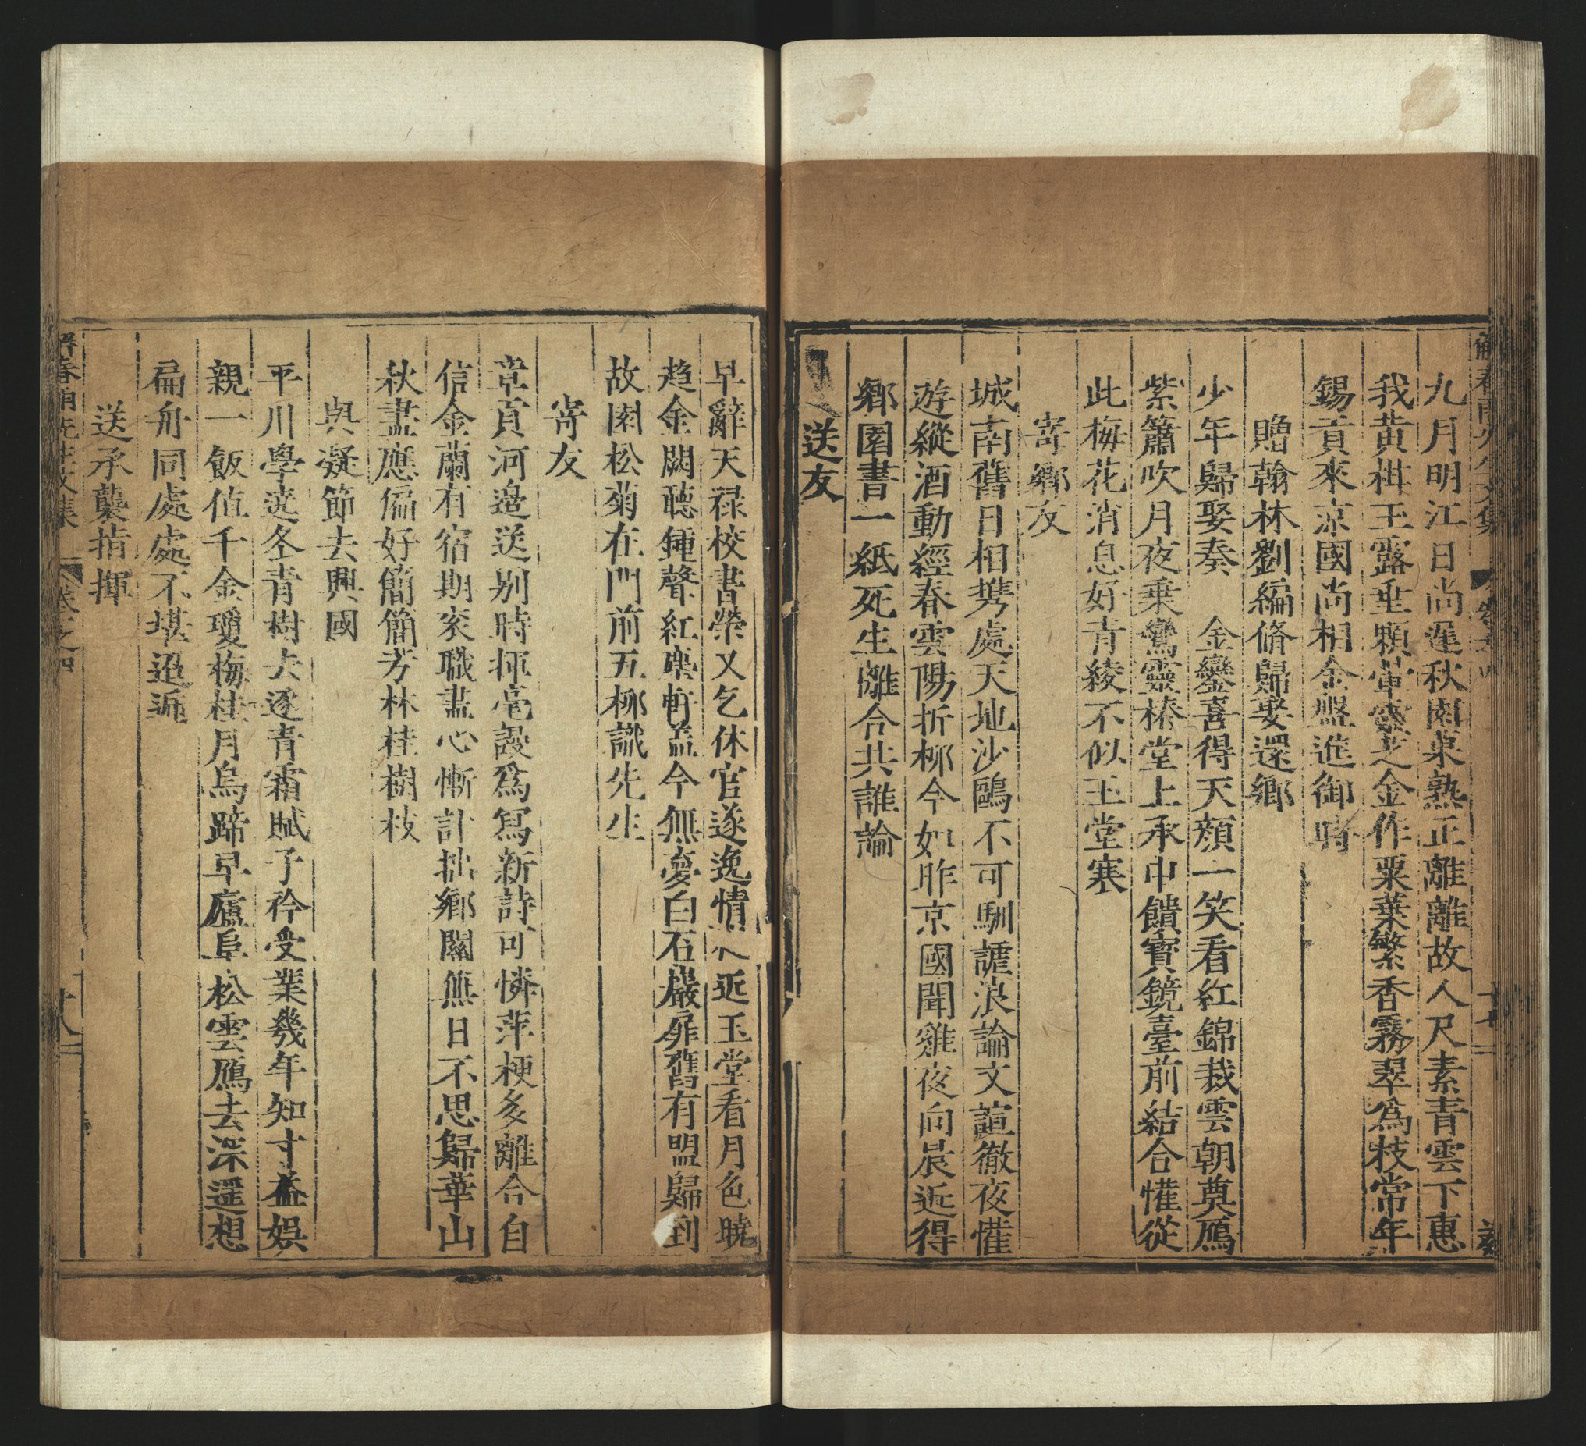 九月明江日尚遲秋園東熟正離離故人尺素青雲下惠
我黃柑玉露垂顆䈥靈芝金作粟葉繁香霧翠爲枝常年
錫貢來京國尚相金盤進御時
贈翰林劉編脩歸娶還鄉
少年歸娶奏 金鑾喜得天顏一笑看紅錦裁雲朝奠鴈
紫簫吹月夜乗鸞靈椿堂上承中饋寳鏡臺前結合懽從
此梅花消息好青綾不似玉堂寒
寄鄉友
城南舊日相携處天地沙鷗不可馴謔浪論文諠徹夜懽
遊縱酒動經春雲陽折栁今如昨京國聞雞夜向晨近得
鄉園書一紙死生離合共誰論
送友
早辭天禄校書榮又乞休官遂逸情人近玉堂看月色曉
趋金闕聴鍾聲紅塵軒盖今無夢白石巖扉舊有盟歸到
故園松菊在門前五栁識先生
寄友
章貢河邉送别時揮毫謾爲冩新詩可憐萍梗多離合自
信金蘭有宿期衮職盡心慚計拙鄉關無日不思歸華山
秋盡應偏好簡簡芳林桂樹枝
與凝節去興國
平川學遠冬青樹去逐青霜賦子衿受業幾年知寸益娱
親一飯值千金瓊梅桂月烏蹄早廬阜松雲鴈去深遥想
扁舟同處處不堪廹逅
送承襲指揮
解春雨先生文集 卷之四 十八